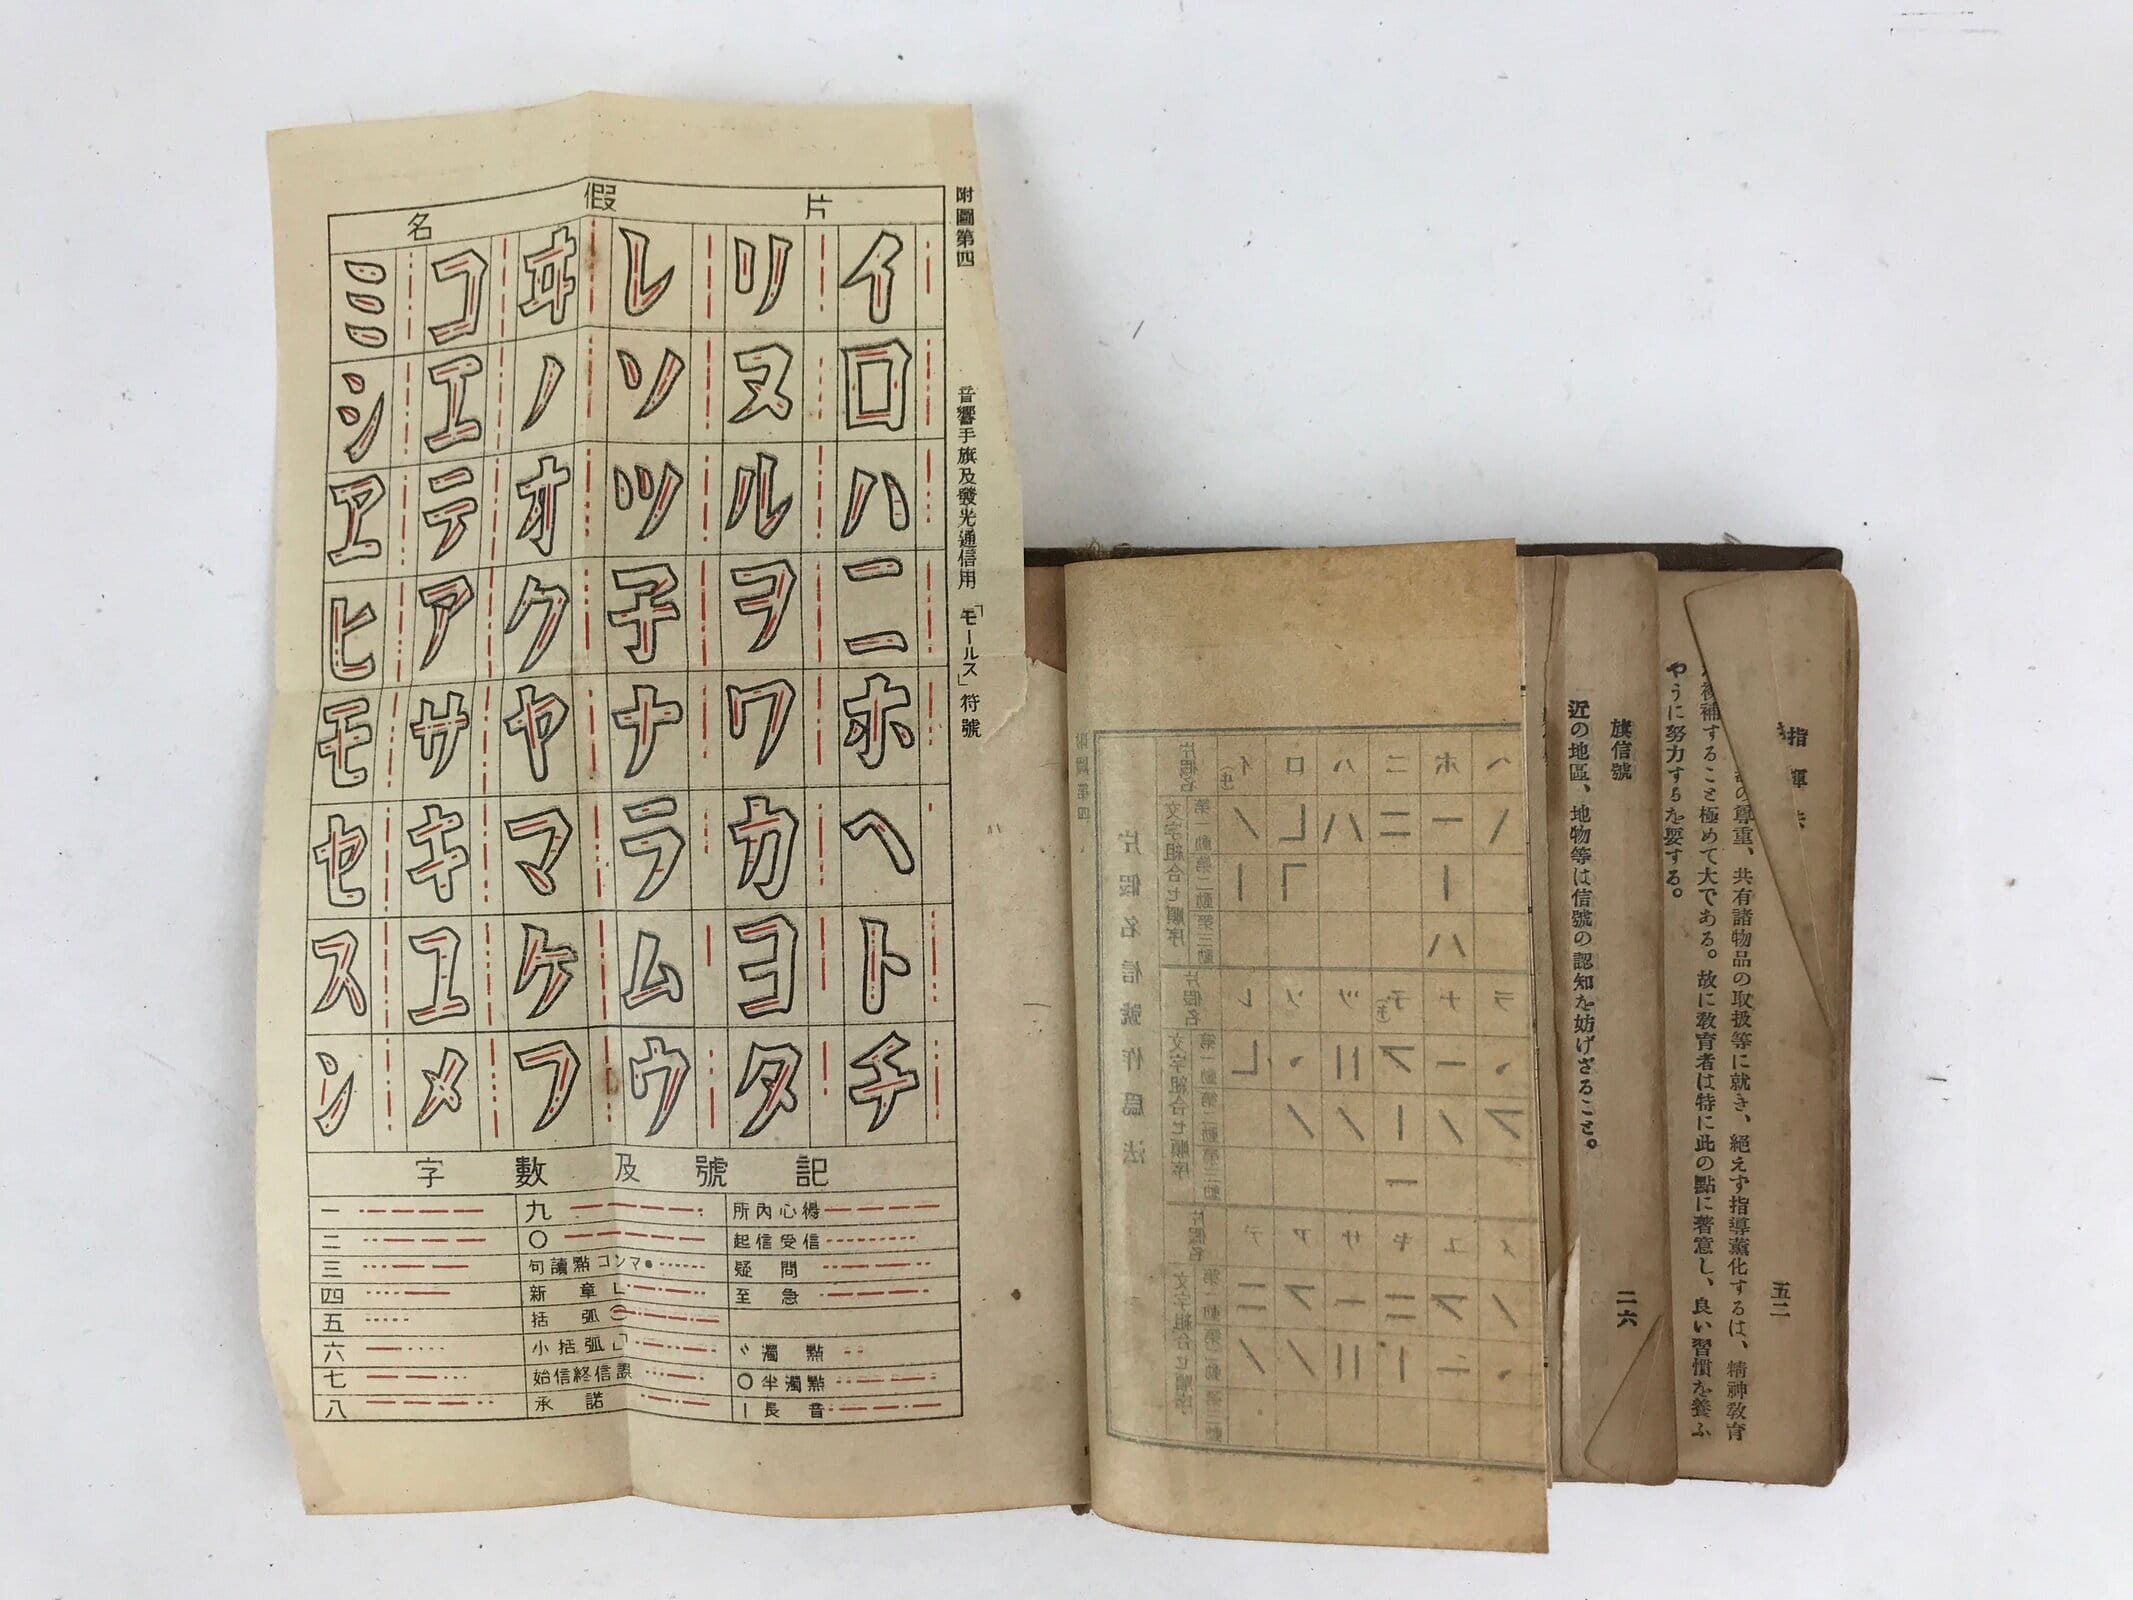 附圖第四　音響手旗及發光通信用「モールス」符號
片假名
イロハニホヘトチ
リヌルヲワカヨタ
レソツ子ナラムウ
ヰノオクヤマケフ
コエテアサキユメ
ミシヱヒモセスン
記號及數字
一
二
三
四
五
六
七
八
九
〇
句讀點コンマ●
新章└
括弧
小括弧
始信終信誤
承諾
所內心得
起信受信
疑問
至急
〃濁點
〇半濁點
ー長音
附圖第四
片假名信號作爲法
片假名
イ(ヰ) ロ ハ ニ ホ ヘ
文字組合セ順序
第一動
第二動
第三動
片假名
レ ソ ツ 子(ネ) ナ ラ
文字組合セ順序
第一動
第二動
第三動
片假名
テ ア サ キ ユ メ
文字組合セ順序
第一動
第二動
第三動
旗信號　二六
近の地區、地物等は信號の認知を妨げざること。
指　五二
の尊重、共有諸物品の取扱等に就き、絕えず指導薰化するは、精神敎育
補すること極めて大である。故に敎育者は特に此の點に著意し、良い習慣を養ふ
やうに努力するを要する。